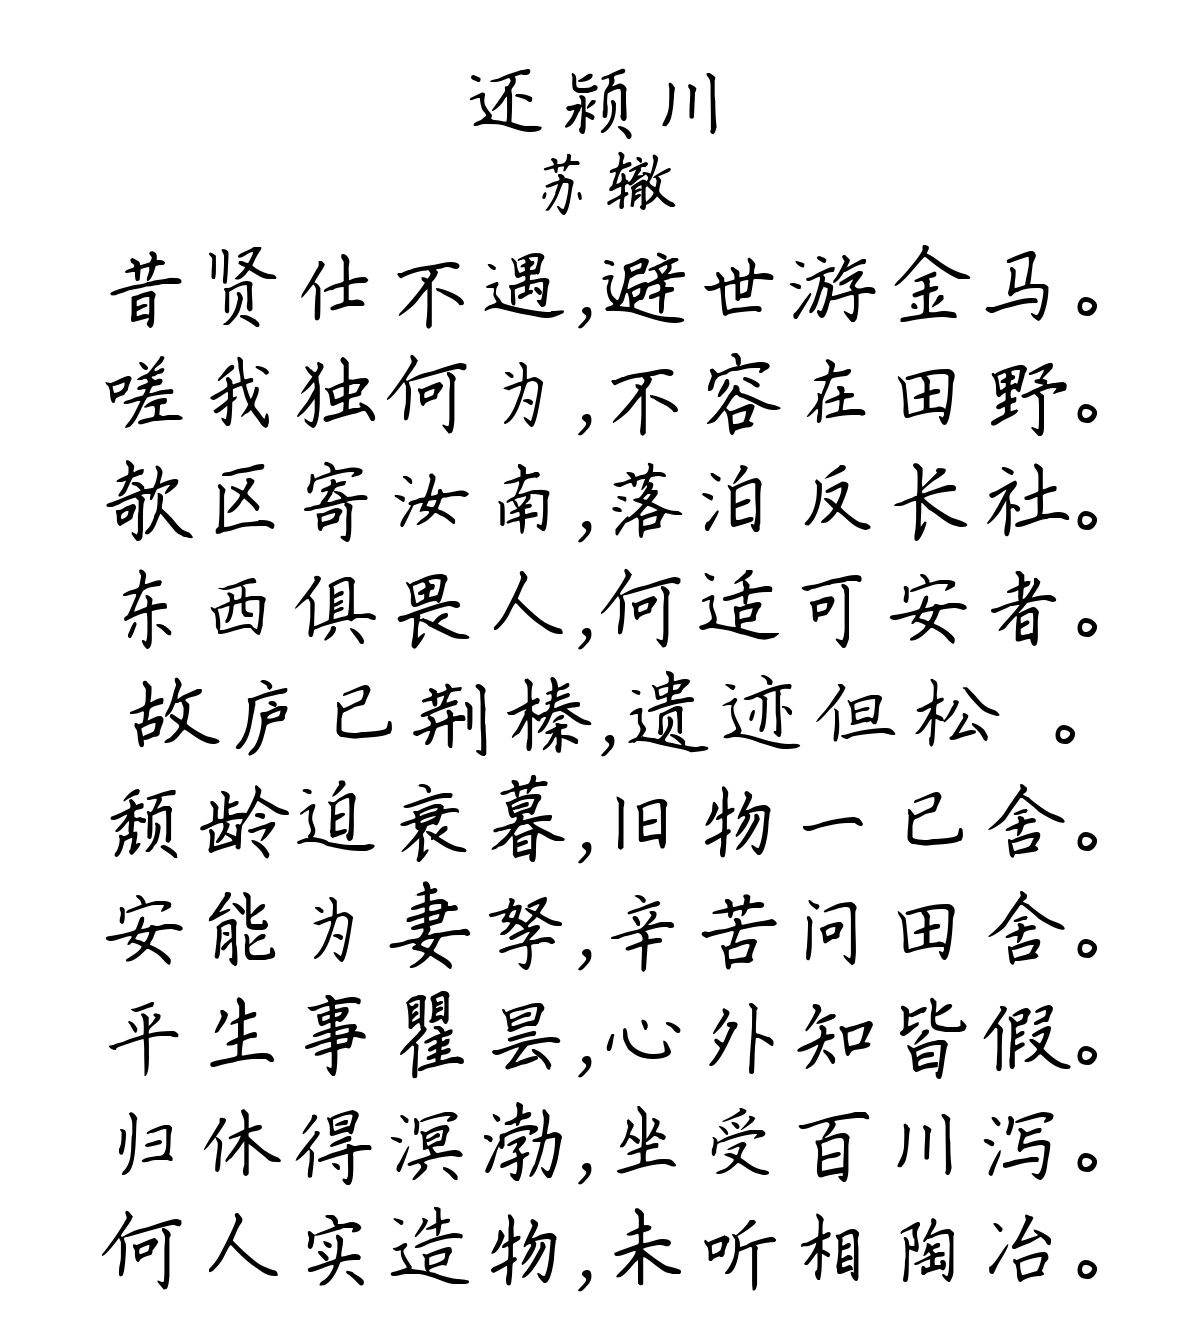 还颍川
苏辙
昔贤仕不遇,避世游金马。
嗟我独何为,不容在田野。
欹区寄汝南,落泊反长社。
东西俱畏人,何适可安者。
故庐已荆榛,遗迹但松 。
颓龄迫衰暮,旧物一已舍。
安能为妻孥,辛苦问田舍。
平生事瞿昙,心外知皆假。
归休得溟渤,坐受百川泻。
何人实造物,未听相陶冶。